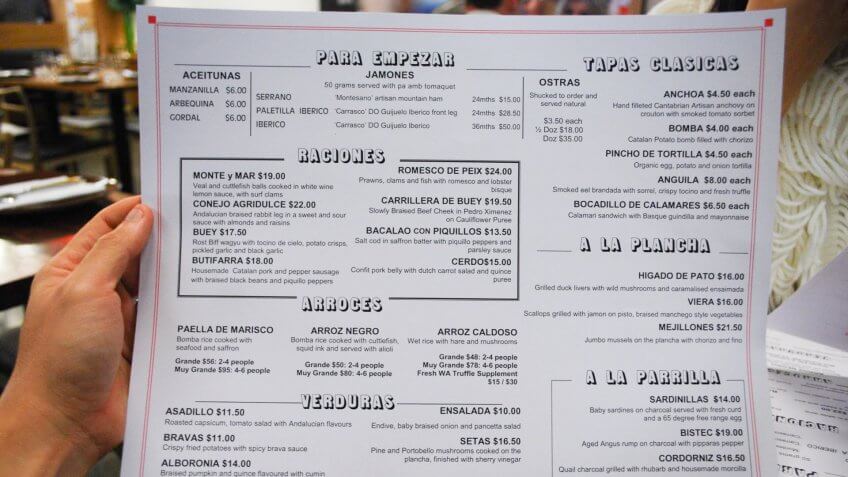 PARA EMPEZAR
ACEITUNAS
MANZANILLA $6.00
ARBEQUINA $6.00
GORDAL $6.00
JAMONES
50 grams served with pa amb tomaquet
SERRANO 'Montesano' artisan mountain ham 24mths $15.00
PALETILLA IBERICO 'Carrasco' DO Guijuelo Iberico front leg 24mths $28.50
IBERICO 'Carrasco' DO Guijuelo Iberico 36mths $50.00
OSTRAS
Shucked to order and
served natural
$3.50 each
½ Doz $18.00
Doz $35.00
TAPAS CLASICAS
ANCHOA $4.50 each
Hand filleted Cantabrian Artisan anchovy on
crouton with smoked tomato sorbet
BOMBA $4.00 each
Catalan Potato bomb filled with chorizo
PINCHO DE TORTILLA $4.50 each
Organic egg, potato and onion tortilla
ANGUILA $8.00 each
Smoked eel brandada with sorrel, crispy tocino and fresh truffle
BOCADILLO DE CALAMARES $6.50 each
Calamari sandwich with Basque guindilla and mayonnaise
RACIONES
MONTE y MAR $19.00
Veal and cuttlefish balls cooked in white wine
lemon sauce, with surf clams
CONEJO AGRIDULCE $22.00
Andalucian braised rabbit leg in a sweet and sour
sauce with almonds and raisins
BUEY $17.50
Rost Biff wagyu with tocino de cielo, potato crisps,
pickled garlic and black garlic
BUTIFARRA $18.00
Housemade Catalan pork and pepper sausage
with braised black beans and piquillo peppers
ROMESCO DE PEIX $24.00
Prawns, clams and fish with romesco and lobster
bisque
CARRILLERA DE BUEY $19.50
Slowly Braised Beef Cheek in Pedro Ximenez
on Cauliflower Puree
BACALAO CON PIQUILLOS $13.50
Salt cod in saffron batter with piquillo peppers and
parsley sauce
CERDO$15.00
Confit pork belly with dutch carrot salad and quince
puree
A LA PLANCHA
HIGADO DE PATO $16.00
Grilled duck livers with wild mushrooms and caramalised ensaimada
VIERA $16.00
Scallops grilled with jamon on pisto, braised manchego style vegetables
MEJILLONES $21.50
Jumbo mussels on the plancha with chorizo and fino
ARROCES
PAELLA DE MARISCO
Bomba rice cooked with
seafood and saffron
Grande $56: 2-4 people
Muy Grande $95: 4-6 people
ARROZ NEGRO
Bomba rice cooked with cuttlefish,
squid ink and served with alioli
Grande $50: 2-4 people
Muy Grande $80: 4-6 people
ARROZ CALDOSO
Wet rice with hare and mushrooms
Grande $48: 2-4 people
Muy Grande $78: 4-6 people
Fresh WA Truffle Supplement
$15 / $30
VERDURAS
ASADILLO $11.50
Roasted capsicum, tomato salad with Andalucian flavours
BRAVAS $11.00
Crispy fried potatoes with spicy brava sauce
ALBORONIA $14.00
Braised pumpkin and quince flavoured with cumin
ENSALADA $10.00
Endive, baby braised onion and pancetta salad
SETAS $16.50
Pine and Portobello mushrooms cooked on the
plancha, finished with sherry vinegar
A LA PARRILLA
SARDINILLAS $14.00
Baby sardines on charcoal served with fresh curd
and a 65 degree free range egg
BISTEC $19.00
Aged Angus rump on charcoal with pipparas pepper
CORDORNIZ $16.50
Quail charcoal grilled with rhubarb and housemade morcilla